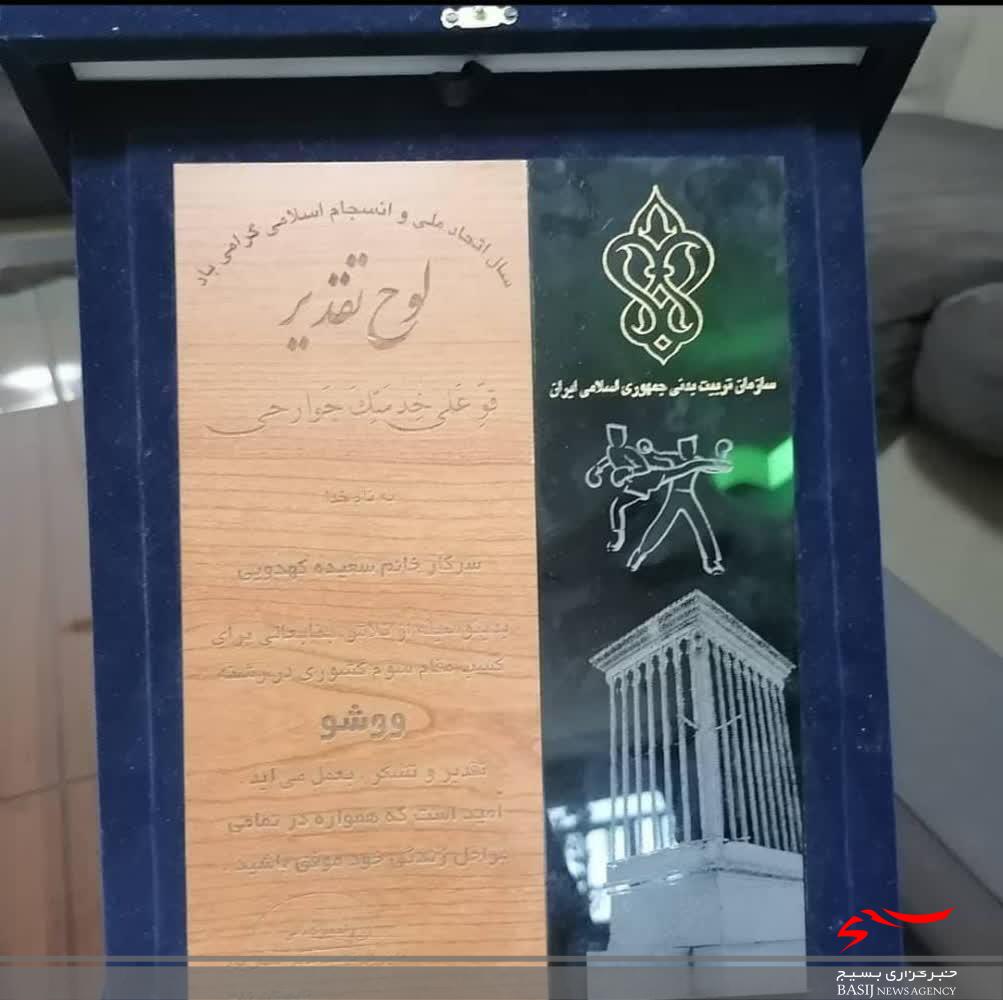 سال اتحاد ملی و انسجام اسلامی گرامی باد
لوح تقدیر
قَوِّ عَلی خِدمَتِكَ جَوارِحی
به نام خدا
سرکار خانم سعیده کهدویی
بدینوسیله از تلاش شما برای
کسب مقام سوم کشوری در رشته
ووشو
تقدیر و تشکر بعمل می آید
امید است که همواره در تمامی
مراحل زندگی خود موفق باشید .
سازمان تربیت بدنی جمهوری اسلامی ایران
خبرگزاری بسیج
BASIJ NEWS AGENCY